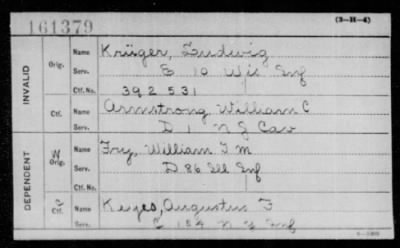 161379
(3-H-4)
INVALID
Orig.
Name Krüger, Ludwig
Serv. E 10 Wis Inf
Ctf. No. 392531
Ctf.
Name Armstrong William C
Serv. D 1 N J Cav
DEPENDENT
W Orig.
Name Fry, William T M
Serv. D 86 Ill Inf
Ctf. No.
Ctf.
Name Keyes, Augustus F
Serv. 184 N Y Inf